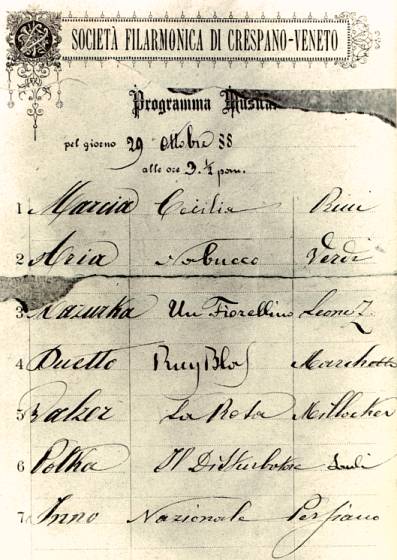 SOCIETÀ FILARMONICA DI CRESPANO-VENETO
Programma
pel giorno 29 Ottobre 88
alle ore 3.½ pom.
1 Marcia Cecilia Ricci
2 Aria Nabucco Verdi
3 Mazurka Un Fiorellino Leonez
4 Duetto Ruy Blas
5 Valzer La Rota Millocker
6 Polka Il Disturbatore
7 Inno Nazionale Persiano